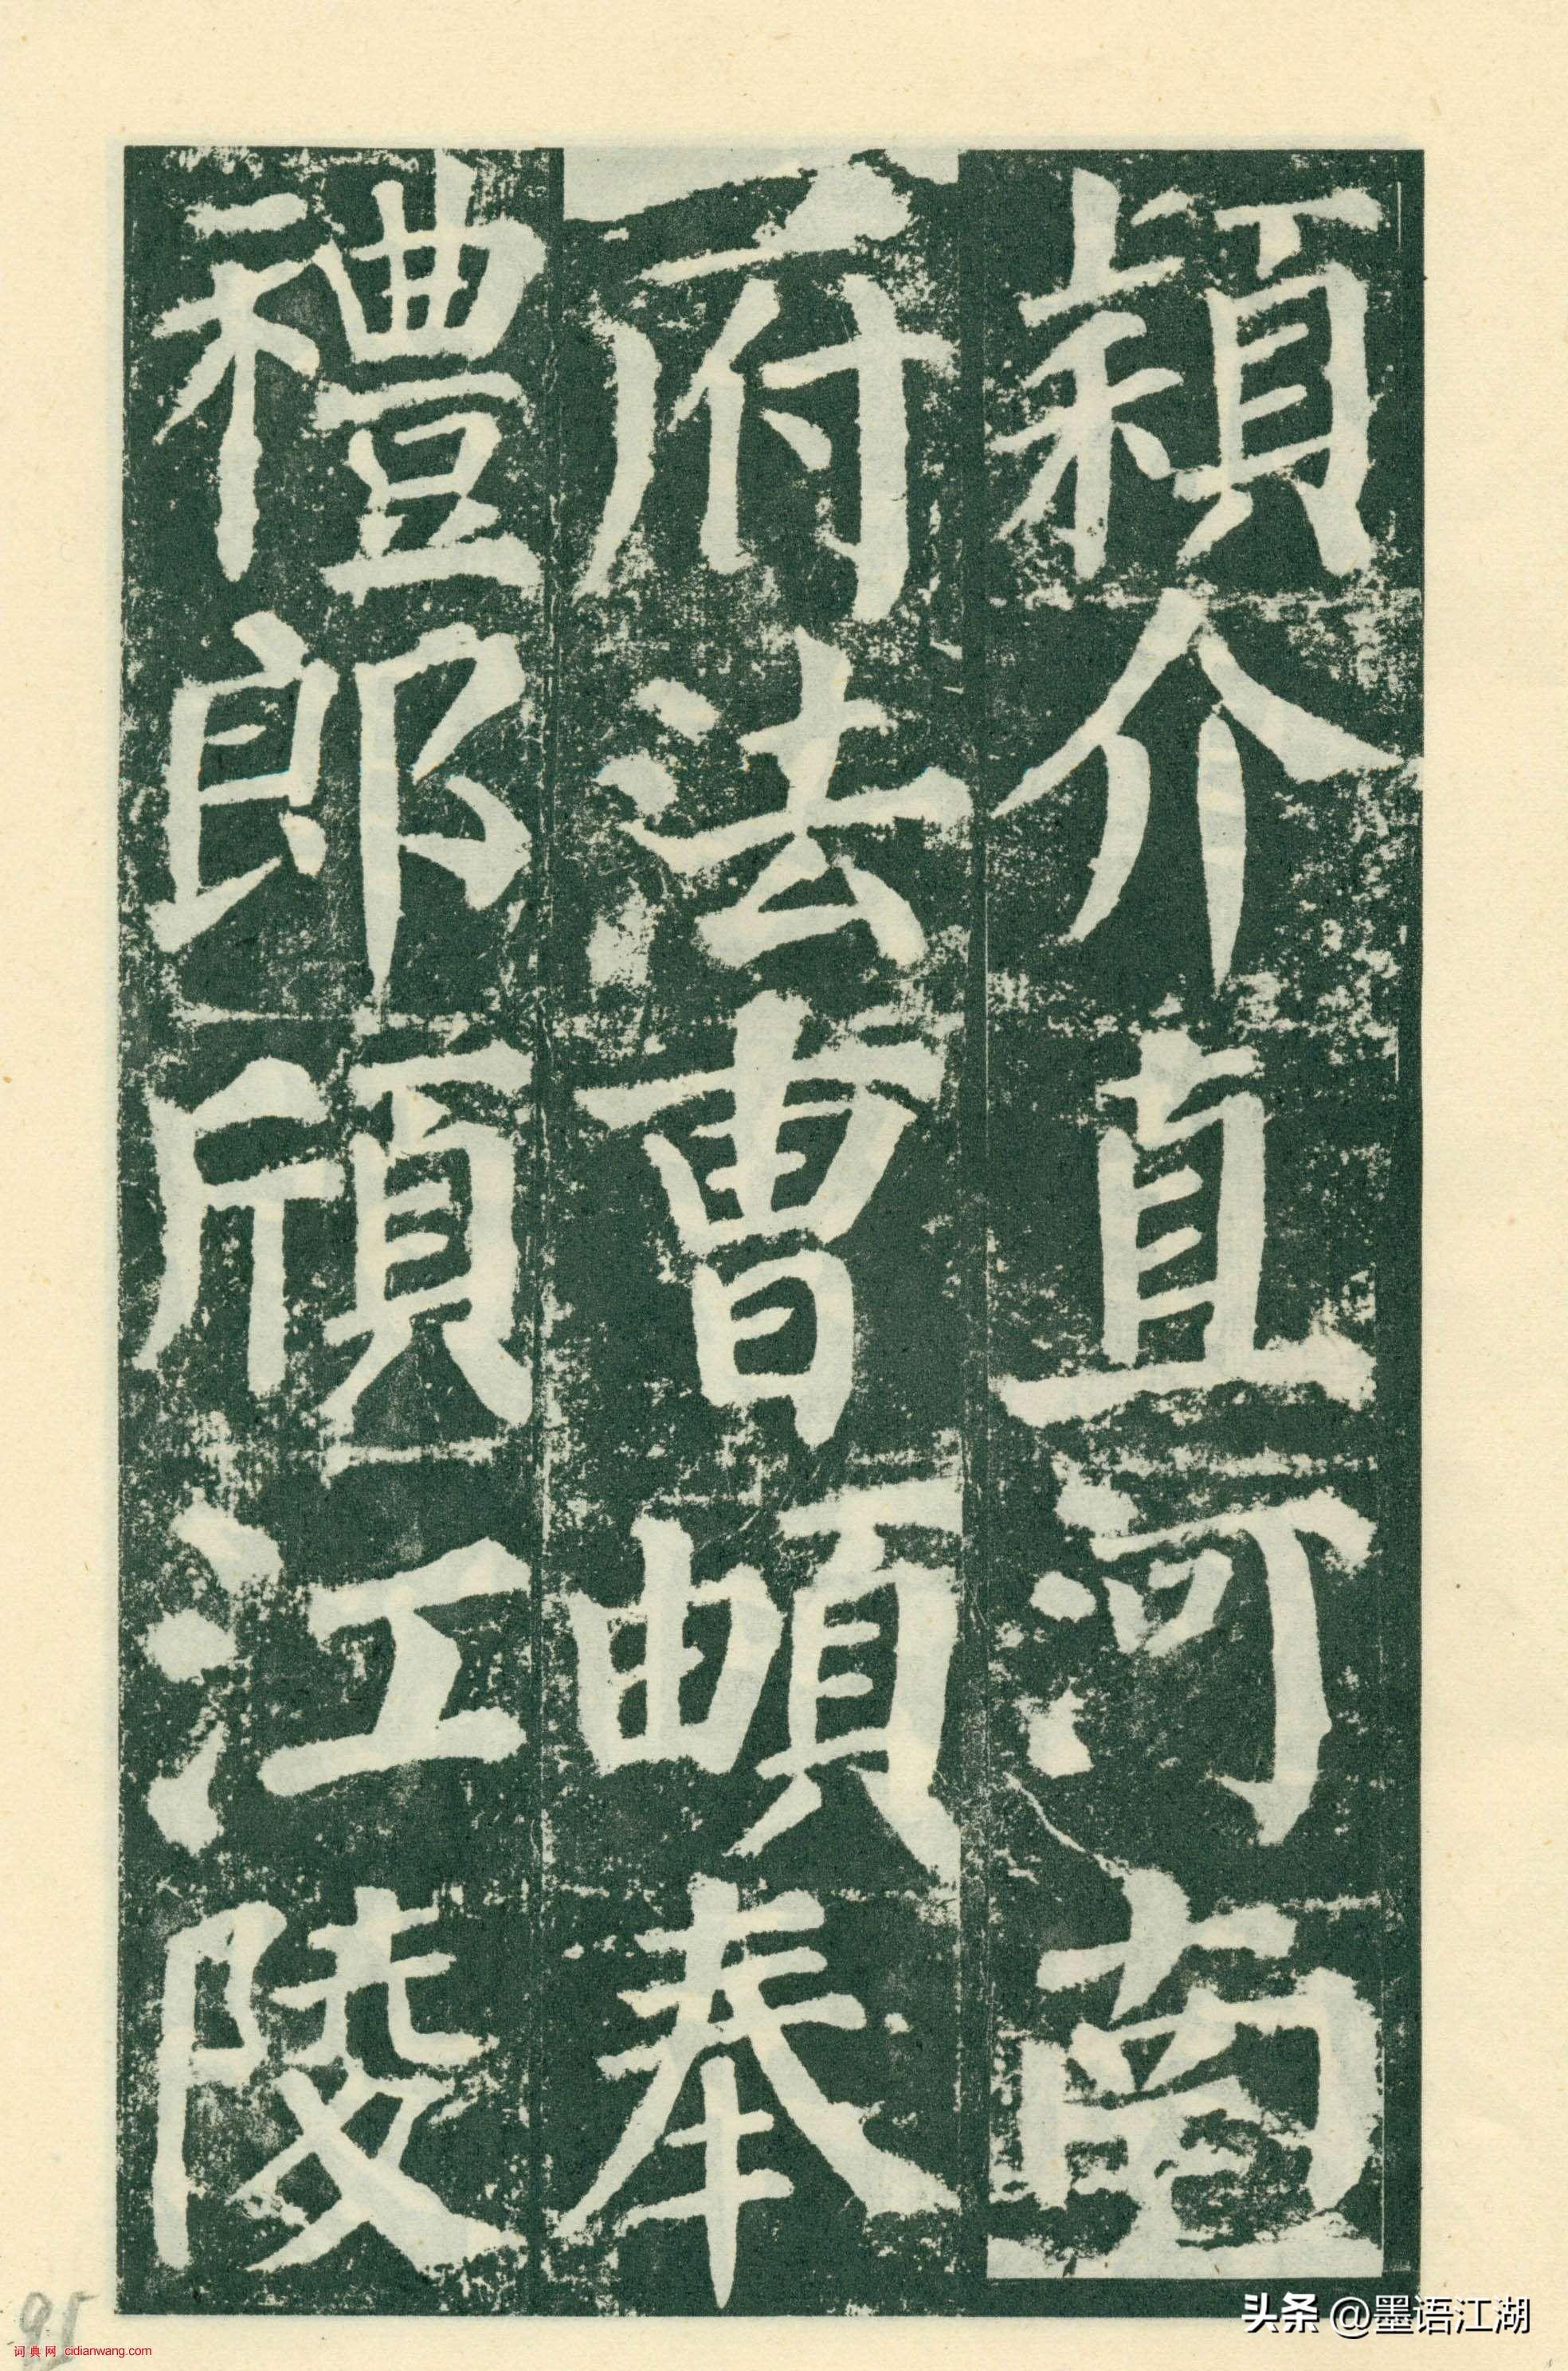 穎介直河南
府法曹頔奉
禮郎頎江陵
头条 @墨语江湖
词典网 cidianwang.com